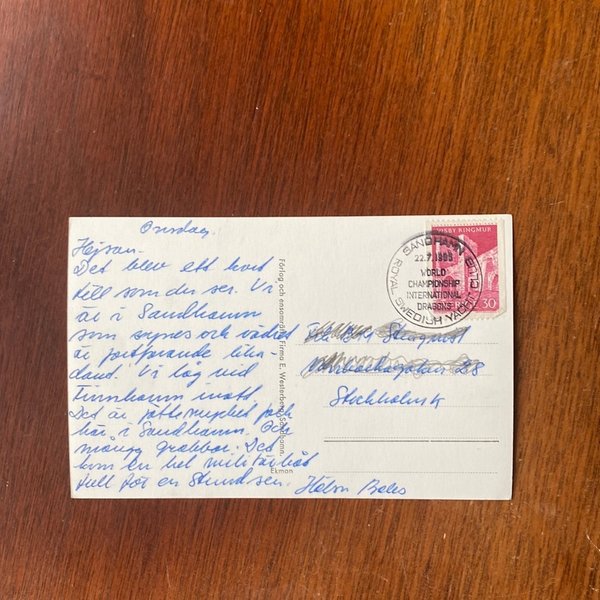 Onsdag.
Hejsan.
Det blev ett kort
till som du ser. Vi
är i Sandhamn
som synes och vädret
är fortfarande likadant.
Vi låg vid
Finnhamn inatt.
Det är jättemycket folk
här i Sandhamn. Och
många grabbar. Det
kom en hel militärbåt
full för en stund sen.
Förlag och ensamrätt: Firma E. Westerberg, Sandhamn.
Ekman
VISBY RINGMUR
30
SANDHAMN
22.7.1965
WORLD
CHAMPIONSHIP
INTERNATIONAL
DRAGONS
ROYAL SWEDISH YACHT CLUB
28
Stockholm